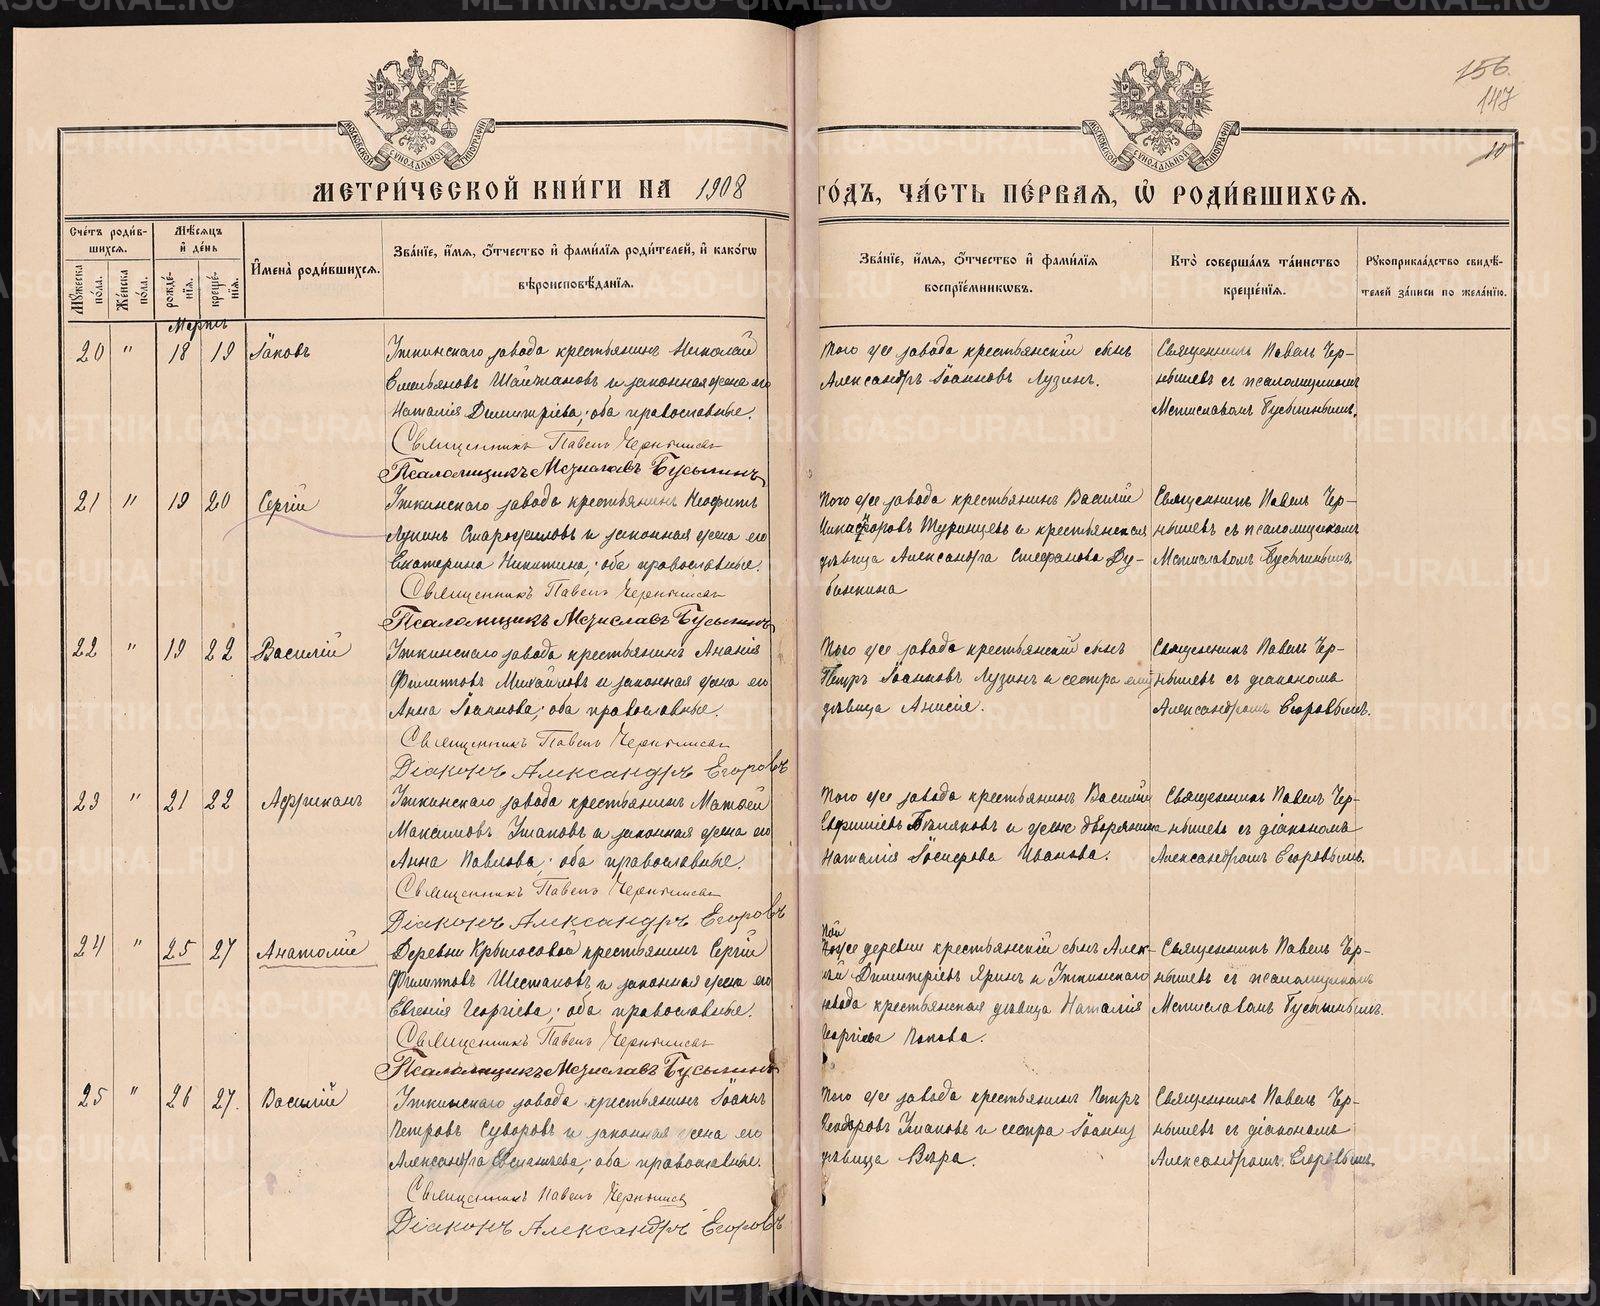 156.
147
10
МОСКОВСКОЙ СѴНОДАЛЬНОЙ ТИПОГРАФІИ
МОСКОВСКОЙ СѴНОДАЛЬНОЙ ТИПОГРАФІИ
МЕТРИ́ЧЕСКОЙ КНИ́ГИ НА 1908 ГО́ДЪ, ЧА́СТЬ ПЕ́РВАЯ, Ѡ҆ РОДИ́ВШИХСЯ.
Сче́тъ роди́вшихся.
Му́жеска по́ла.
Же́нска по́ла.
Мѣ́сяцъ и҆ де́нь
рожде́нія.
креще́нія.
И҆мена̀ роди́вшихся.
Зва́ніе, и҆́мя, ѻ҆́тчество и҆ фами́лія роди́телей, и҆ како́гѡ
вѣроисповѣ́данія.
Зва́ніе, и҆́мя, ѻ҆́тчество и҆ фами́лія
воспріе́мникѡвъ.
Кто̀ соверша́лъ та́инство
креще́нія.
Рукоприкла́дство свидѣ́телей за́писи по жела́нію.
Мартъ
20 " 18 19 Іаковъ
Уткинскаго завода крестьянинъ Николай
Емельяновъ и законная жена его
Наталія Димитріева; оба православные.
Священникъ Павелъ Чернышевъ
Псаломщикъ Мстиславъ Бусыгинъ
Того же завода крестьянскій сынъ
Александръ Іоанновъ Лузинъ.
Священникъ Павелъ Чер-
нышевъ съ псаломщикомъ
Мстиславомъ Бусыгинымъ.
21 " 19 20 Сергій
Уткинскаго завода крестьянинъ Неофитъ
Лукинъ Старожиловъ и законная жена его
Екатерина Никитина; оба православные.
Священникъ Павелъ Чернышевъ
Псаломщикъ Мстиславъ Бусыгинъ
Того же завода крестьянинъ Василій
Никифоровъ Туринцевъ и крестьянская
дѣвица Александра Стефанова Ду-
бинкина
Священникъ Павелъ Чер-
нышевъ съ псаломщикомъ
Мстиславомъ Бусыгинымъ.
22 " 19 22 Василій
Уткинскаго завода крестьянинъ Ананія
Филипповъ Михайловъ и законная жена его
Анна Іоаннова; оба православные.
Священникъ Павелъ Чернышевъ
Діаконъ Александръ Егоровъ
Того же завода крестьянскій сынъ
Петръ Іоанновъ Лузинъ и сестра ему
дѣвица Анисія.
Священникъ Павелъ Чер-
нышевъ съ діакономъ
Александромъ Егоровымъ.
23 " 21 22 Африканъ
Уткинскаго завода крестьянинъ Матѳей
Максимовъ Ушаковъ и законная жена его
Анна Павлова; оба православные.
Священникъ Павелъ Чернышевъ
Діаконъ Александръ Егоровъ
Того же завода крестьянинъ Василій
Евфиміевъ и жена дворянина
Наталія Іосифова Иванова.
Священникъ Павелъ Чер-
нышевъ съ діакономъ
Александромъ Егоровымъ.
24 " 25 27 Анатолій
Деревни Крылосовой крестьянинъ Сергій
Филипповъ Шестаковъ и законная жена его
Евгенія Георгіева; оба православные.
Священникъ Павелъ Чернышевъ
Псаломщикъ Мстиславъ Бусыгинъ
Той
же деревни крестьянскій сынъ Алек-
сѣй Димитріевъ Яринъ и Уткинскаго
завода крестьянская дѣвица Наталія
Георгіева Попова.
Священникъ Павелъ Чер-
нышевъ съ псаломщикомъ
Мстиславомъ Бусыгинымъ.
25 " 26 27. Василій
Уткинскаго завода крестьянинъ Іоаннъ
Петровъ Суворовъ и законная жена его
Александра; оба православные.
Священникъ Павелъ Чернышевъ
Діаконъ Александръ Егоровъ
Того же завода крестьянинъ Петръ
Ѳеодоровъ Ушаковъ и сестра Іоанну
дѣвица Вѣра.
Священникъ Павелъ Чер-
нышевъ съ діакономъ
Александромъ Егоровымъ.
METRIKI.GASO-URAL.RU